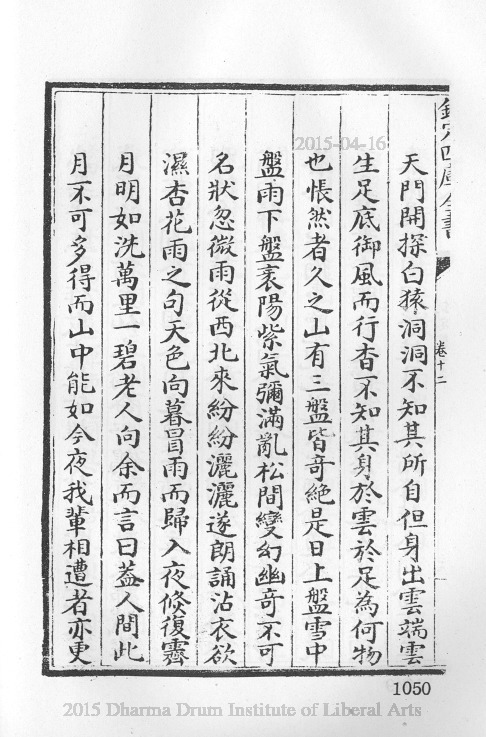 欽定四庫全書
卷十二
天門開探白猿洞洞不知其所自但身出雲端雲
生足底御風而行杳不知其身於雲於足為何物
也悵然者久之山有三盤皆奇絶是日上盤雪中
盤雨下盤衰陽紫氣彌滿亂松間變幻幽奇不可
名狀忽微雨從西北來紛紛灑灑遂朗誦沾衣欲
濕杏花雨之句天色向暮冒雨而歸入夜倐復霽
月明如洗萬里一碧老人向余而言曰葢人間此
月不可多得而山中能如今夜我輩相遭者亦更
2015-04-16
1050
2015 Dharma Drum Institute of Liberal Arts